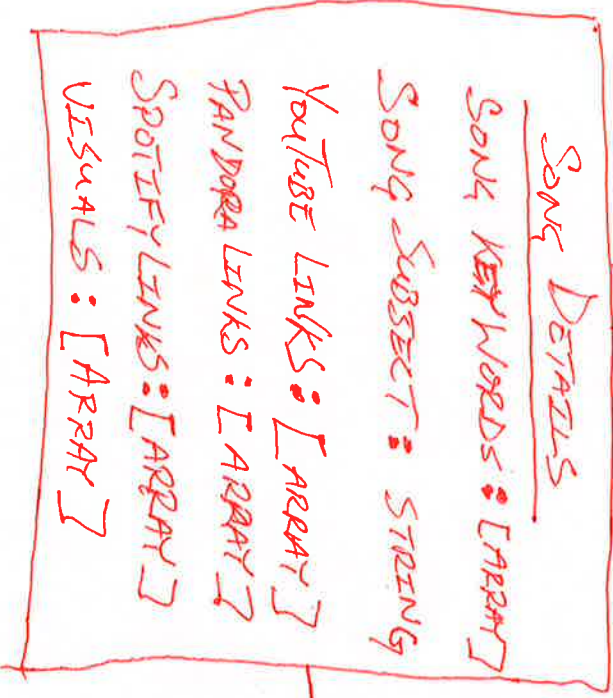 SONG DETAILS
SONG KEYWORDS: [ARRAY]
SONG SUBJECT: STRING
YOUTUBE LINKS: [ARRAY]
PANDORA LINKS: [ARRAY]
SPOTIFY LINKS: [ARRAY]
VISUALS: [ARRAY]